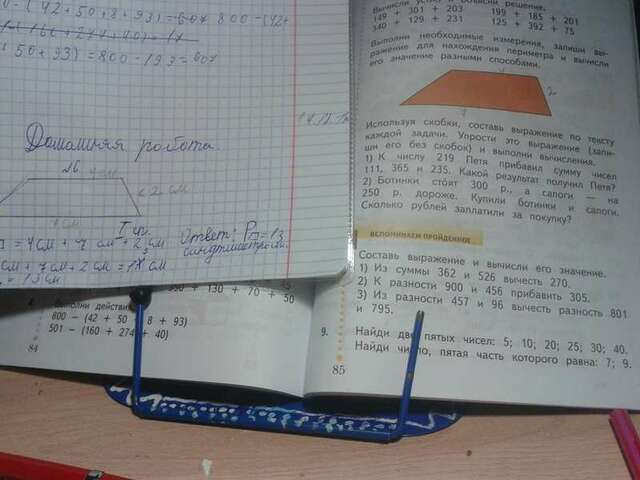 (42 + 50 + 8 + 93) = 607 800 - (42+
50 + 93) = 800 - 193 = 607
Домашняя работа.
№6.
2 см
Ответ: P = 13
сантиметров.
= 4 см + 7 см + 2 см
см + 7 см + 2 см = 13 см
= 13 см
Выполни действия
800 – (42 + 50 + 8 + 93)
501 – (160 + 274 + 40)
84
350 + 130 + 70 + 50
Вычисли устно и объясни решение.
149 + 301 + 203 199 + 185 + 201
340 + 129 + 231 125 + 392 + 75
Выполни необходимые измерения, запиши вы-
ражение для нахождения периметра и вычисли
его значение разными способами.
Используя скобки, составь выражение по тексту
каждой задачи. Упрости это выражение (запи-
ши его без скобок) и выполни вычисления.
1) К числу 219 Петя прибавил сумму чисел
111, 365 и 235. Какой результат получил Петя?
2) Ботинки стоят 300 р., а сапоги — на
250 р. дороже. Купили ботинки и сапоги.
Сколько рублей заплатили за покупку?
ВСПОМИНАЕМ ПРОЙДЕННОЕ
Составь выражение и вычисли его значение.
1) Из суммы 362 и 526 вычесть 270.
2) К разности 900 и 456 прибавить 305.
3) Из разности 457 и 96 вычесть разность 801
и 795.
9. Найди две пятых чисел: 5; 10; 20; 25; 30; 40.
Найди число, пятая часть которого равна: 7; 9.
85